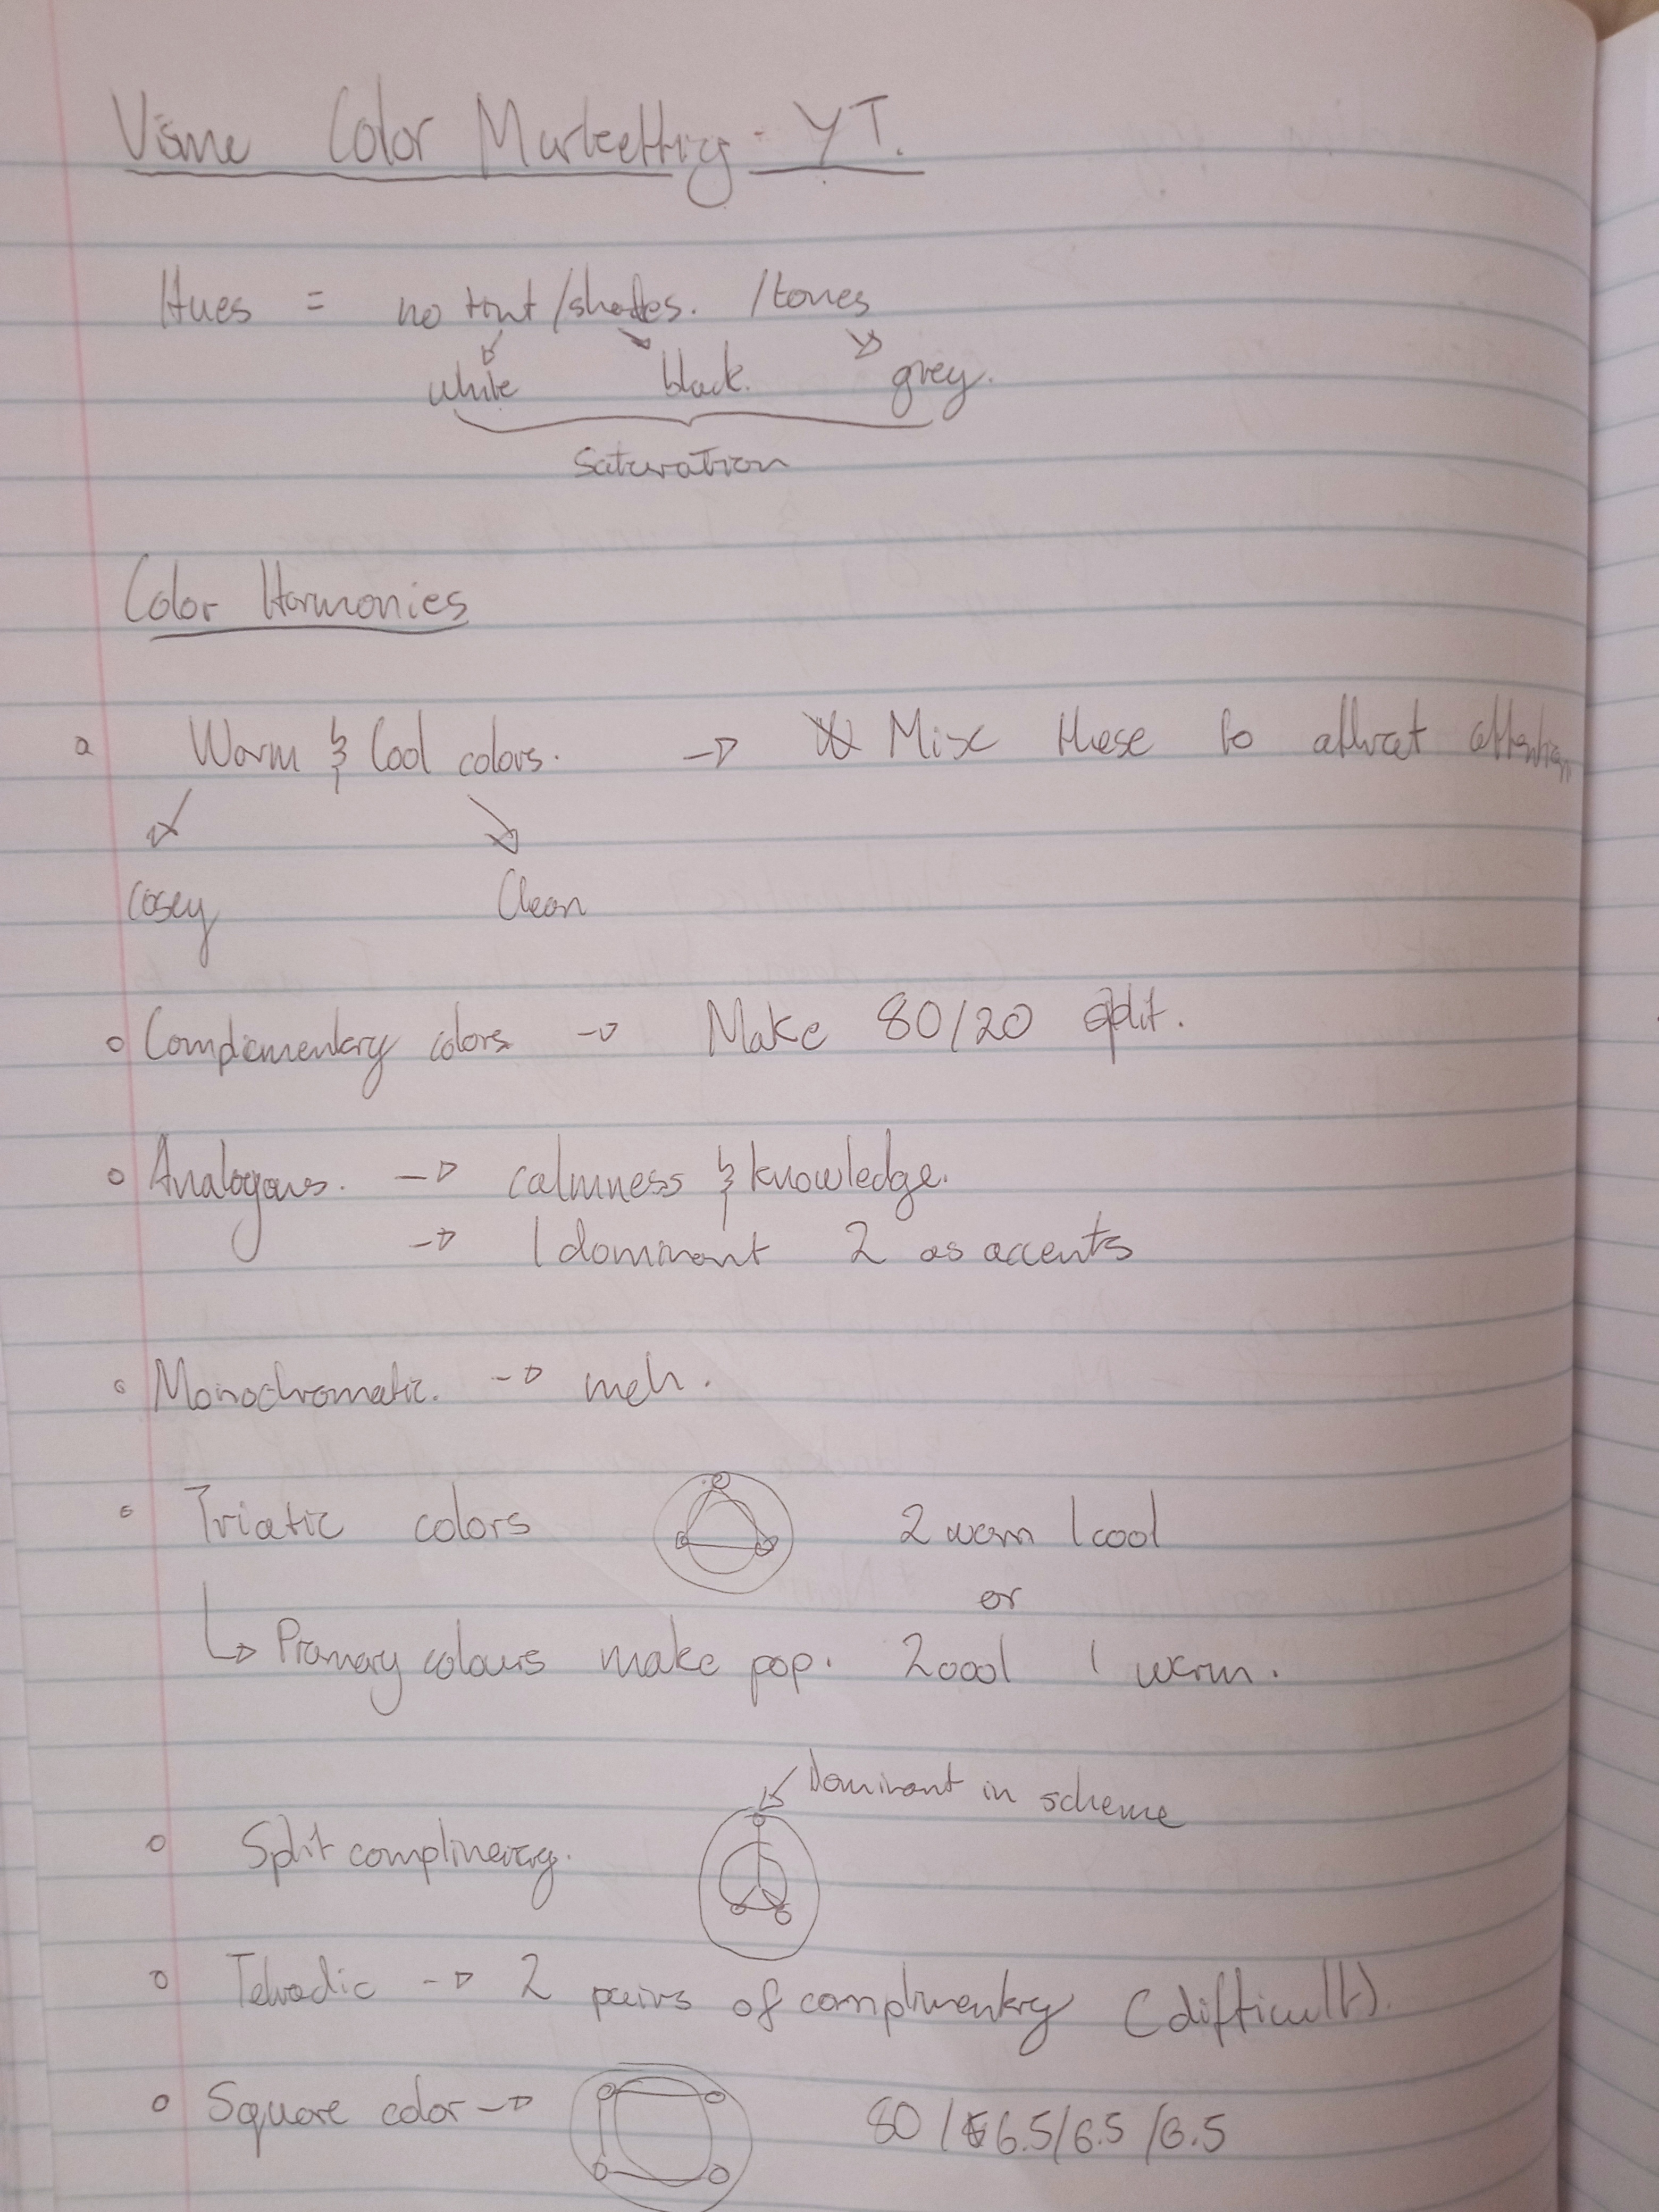 Visme Color Marketting - YT.
Hues = no tint/shades. /tones
white black. grey.
Saturation
Color Harmonies
Warm & Cool colors. → Mix these to attract attention
cosey Clean
Complementary colors → Make 80/20 split.
Analogous. → calmness & knowledge.
→ 1 dominant 2 as accents
Monochromatic. → meh.
Triatic colors 2 warm 1 cool
or
↳ Primary colours make pop. 2 cool 1 warm.
Dominant in scheme
Split
Tetradic → 2 pairs of complimentry (difficult).
Square color → 80 / 6.5/6.5 /6.5